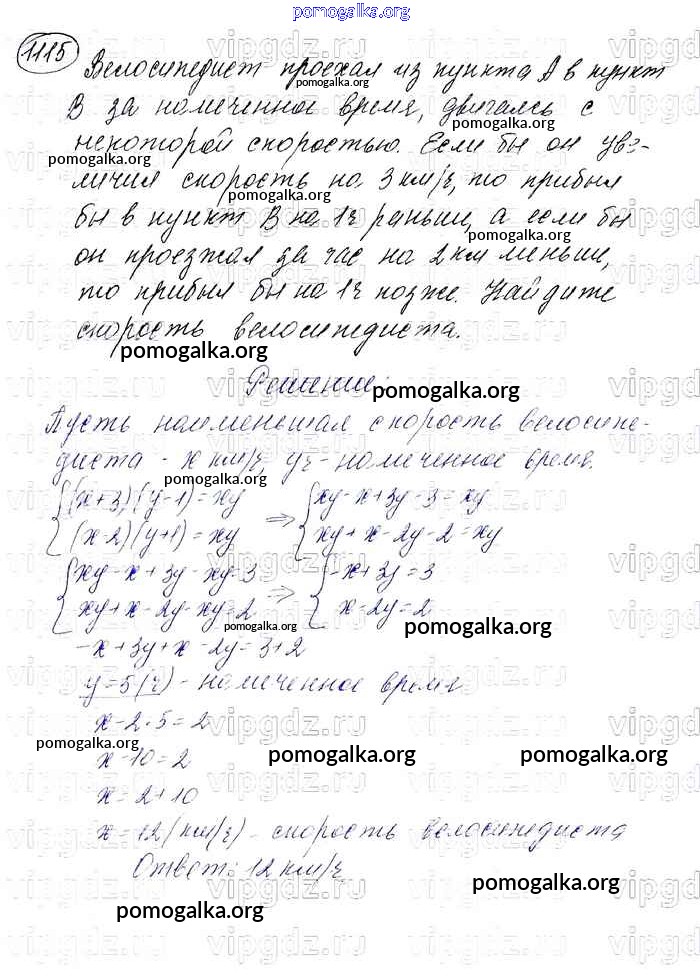 pomogalka.org
1115
Велосипедист проехал из пункта А в пункт
pomogalka.org
В за намеченное время, двигаясь с
pomogalka.org
некоторой скоростью. Если бы он уве-
pomogalka.org
личил скорость на 3 км/ч, то прибыл
pomogalka.org
бы в пункт В на 1ч раньше, а если бы
pomogalka.org
он проезжал за час на 2 км меньше,
то прибыл бы на 1ч позже. Найдите
скорость велосипедиста.
pomogalka.org
Решение:
pomogalka.org
Пусть наименьшая скорость велосипе-
диста - x км/ч, yч - намеченное время.
pomogalka.org
{(x+3)(y-1)=xy {xy-x+3y-3=xy
{(x-2)(y+1)=xy => {xy+x-2y-2=xy
{xy-x+3y-xy=3 {-x+3y=3
{xy+x-2y-xy=2 => {x-2y=2
pomogalka.org pomogalka.org
-x+3y+x-2y=3+2
y=5(ч) - намеченное время
x-2·5=2
pomogalka.org pomogalka.org pomogalka.org
x-10=2
x=2+10
x=12(км/ч) - скорость велосипедиста
Ответ: 12 км/ч
pomogalka.org
pomogalka.org
vipgdz.ru